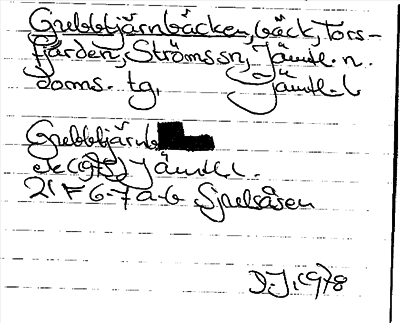 Grebbtjärnbäcken, bäck, Tors-
fjärden, Ströms sn, Jämtl. n.
doms. tg, Jämtl. l
Grebbtjärnb
ek (1975) Jämtl l.
21 F 6-7 a-b Sjulsåsen
D.J. 1978